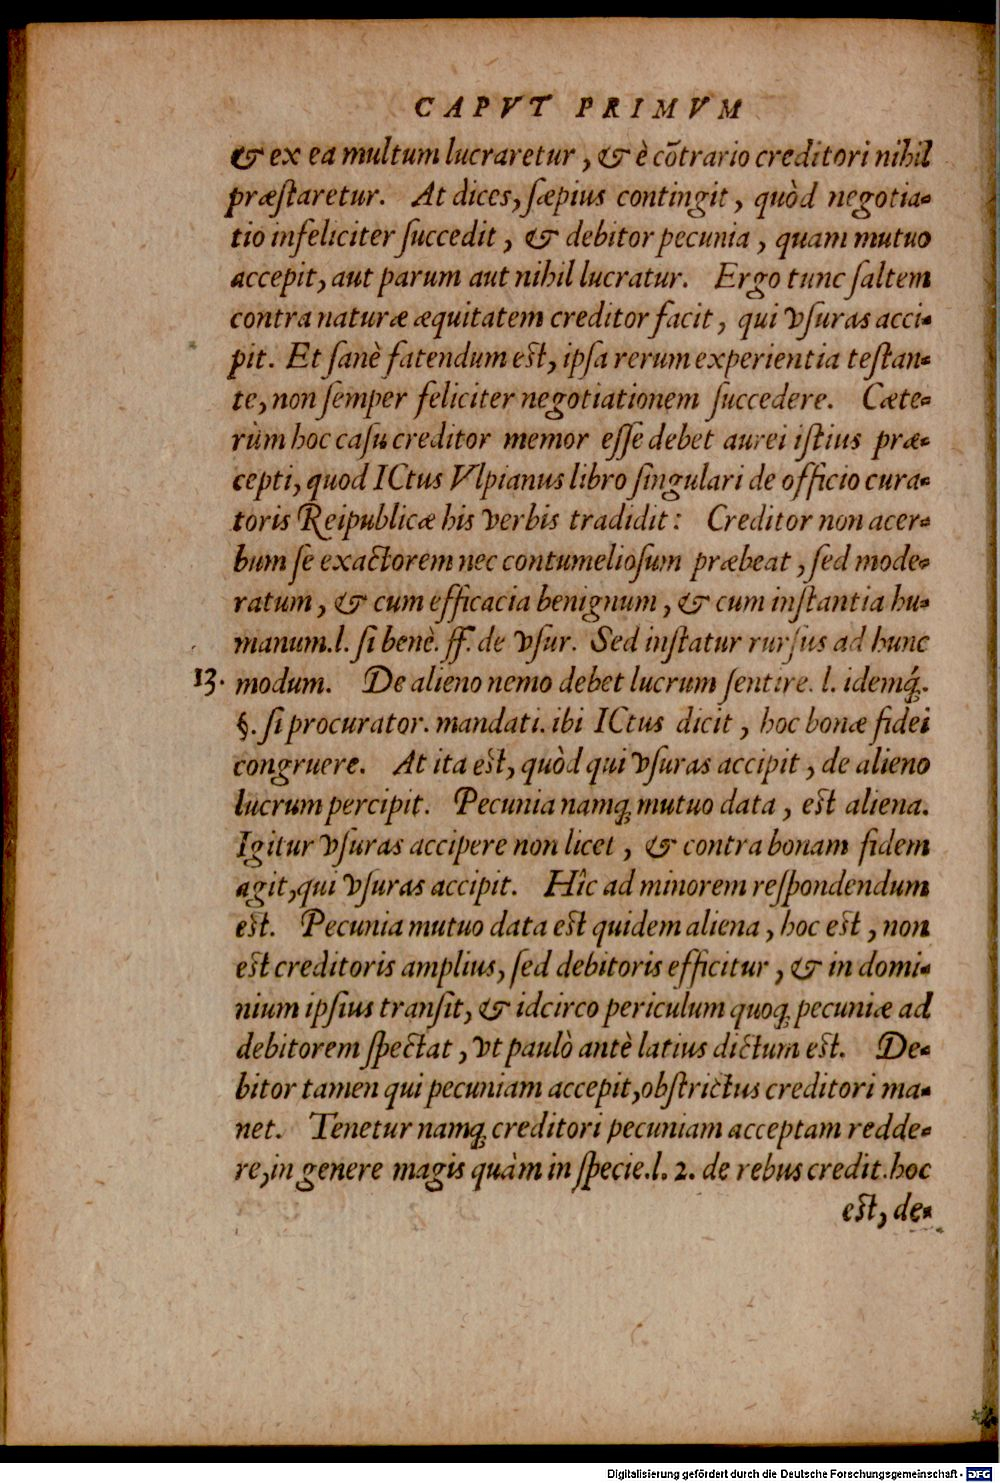 CAPVT PRIMVM
& ex ea multum lucraretur, & è cõtrario creditori nihil
præſtaretur. At dices, ſæpius contingit, quòd negotia-
tio infeliciter ſuccedit, & debitor pecunia, quam mutuo
accepit, aut parum aut nihil lucratur. Ergo tunc ſaltem
contra naturæ æquitatem creditor facit, qui vſuras acci-
pit. Et ſanè fatendum eſt, ipſa rerum experientia teſtan-
te, non ſemper feliciter negotiationem ſuccedere. Cæte-
rùm hoc caſu creditor memor eſſe debet aurei iſtius præ-
cepti, quod ICtus Vlpianus libro ſingulari de officio cura-
toris Reipublicæ his verbis tradidit: Creditor non acer-
bum ſe exactorem nec contumelioſum præbeat, ſed mode-
ratum, & cum efficacia benignum, & cum inſtantia hu-
manum. l. ſi benè. ff. de vſur. Sed inſtatur rurſus ad hunc
13. modum. De alieno nemo debet lucrum ſentire. l. idemq́;.
§. ſi procurator. mandati. ibi ICtus dicit, hoc bonæ fidei
congruere. At ita eſt, quòd qui vſuras accipit, de alieno
lucrum percipit. Pecunia namq; mutuo data, eſt aliena.
Igitur vſuras accipere non licet, & contra bonam fidem
agit, qui vſuras accipit. Hîc ad minorem reſpondendum
eſt. Pecunia mutuo data eſt quidem aliena, hoc eſt, non
eſt creditoris amplius, ſed debitoris efficitur, & in domi-
nium ipſius tranſit, & idcirco periculum quoq; pecuniæ ad
debitorem ſpectat, vt paulò antè latius dictum eſt. De-
bitor tamen qui pecuniam accepit, obſtrictus creditori ma-
net. Tenetur namq; creditori pecuniam acceptam redde-
re, in genere magis quàm in ſpecie. l. 2. de rebus credit. hoc
eſt, de-
Digitalisierung gefördert durch die Deutsche Forschungsgemeinschaft - DFG